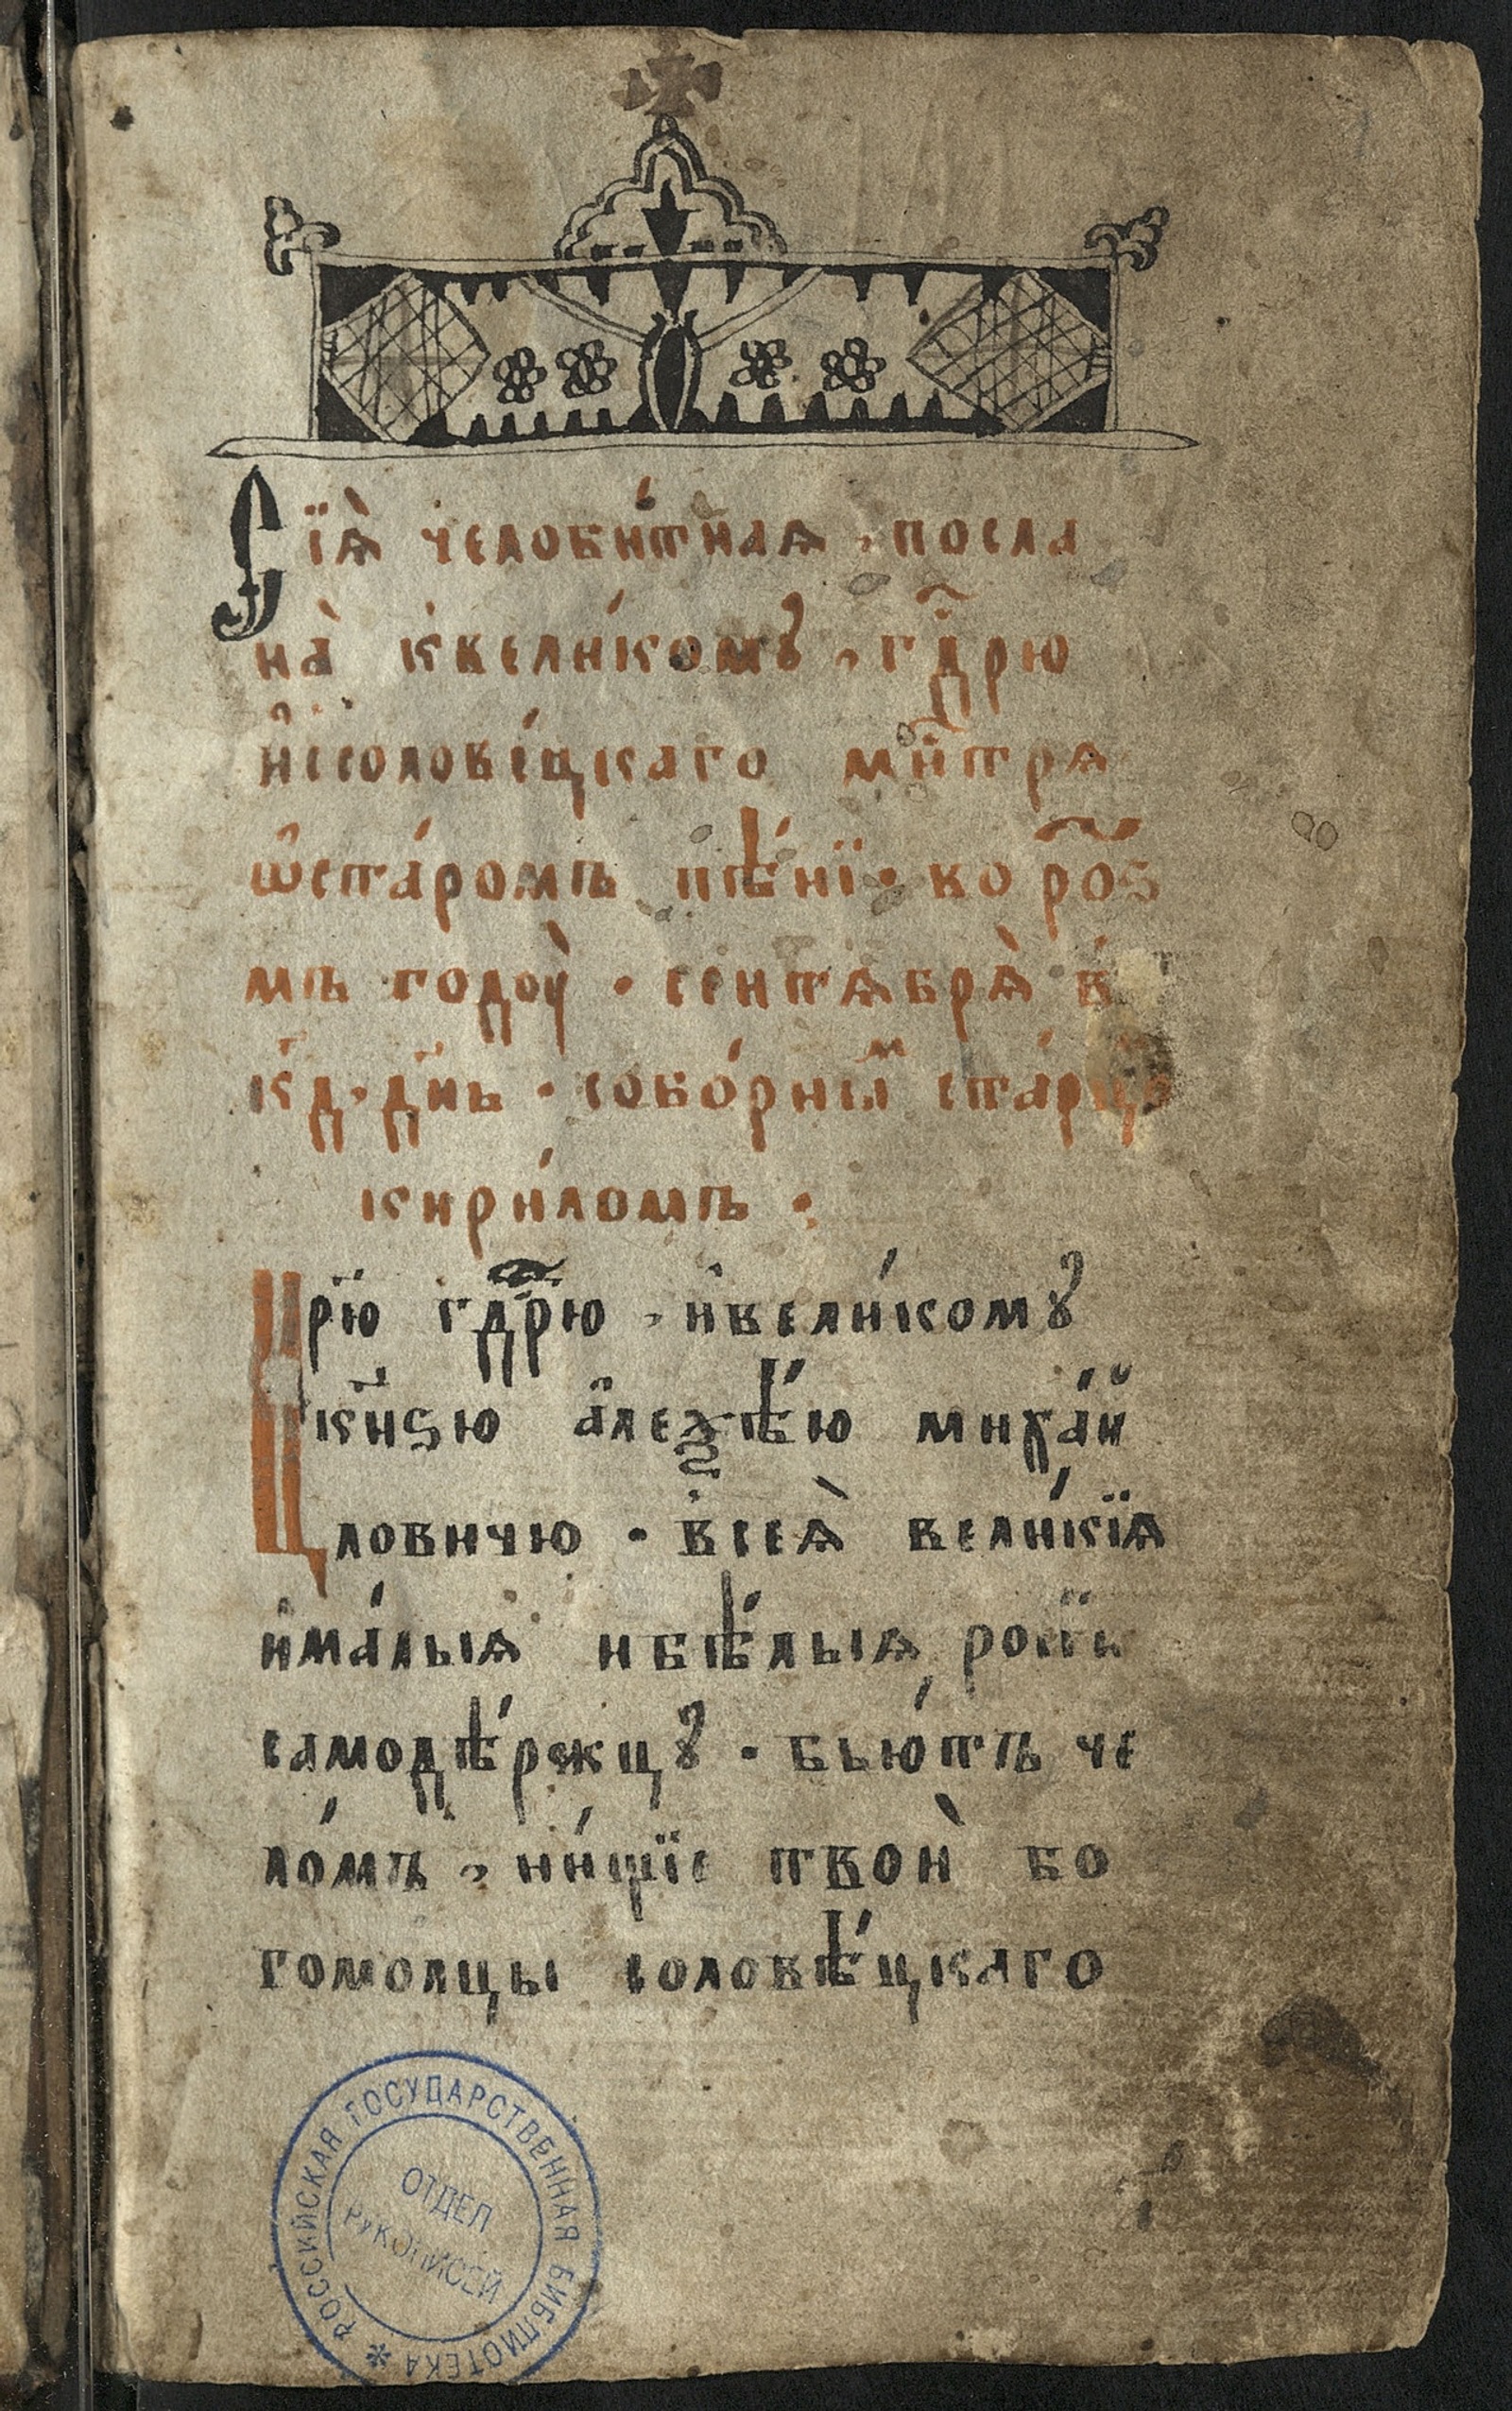 Сїѧ̀ челоби́тнаѧ , посла
на̀ к̾вели́комꙋ , гд҃рю
и҆ссолове́цкаго мн҃трѧ
ѡ҆ста́ромъ пѣ́нїи · во рѻ҃ѕ
мъ годоу̀ · сентѧбрѧ̀ в̾
к҃д · д҃нь · собо́рныⷨ ста́рце
кири́ломъ ·
Цр҃ю гд҃рю , и҆вели́комꙋ
кн҃ѕю а҆леѯѣ́ю миха́й
ловичю · всеѧ̀ вели́кїѧ
и҆ма́лыѧ и бѣ́лыѧ росїи
самодѣ́ржцꙋ · бью́тъ че
ло́мъ , ни́щїе твоѝ бо
гомолцы соловѣ́цкаго
РОССИЙСКАЯ ГОСУДАРСТВЕННАЯ БИБЛИОТЕКА
ОТДЕЛ
РУКОПИСЕЙ